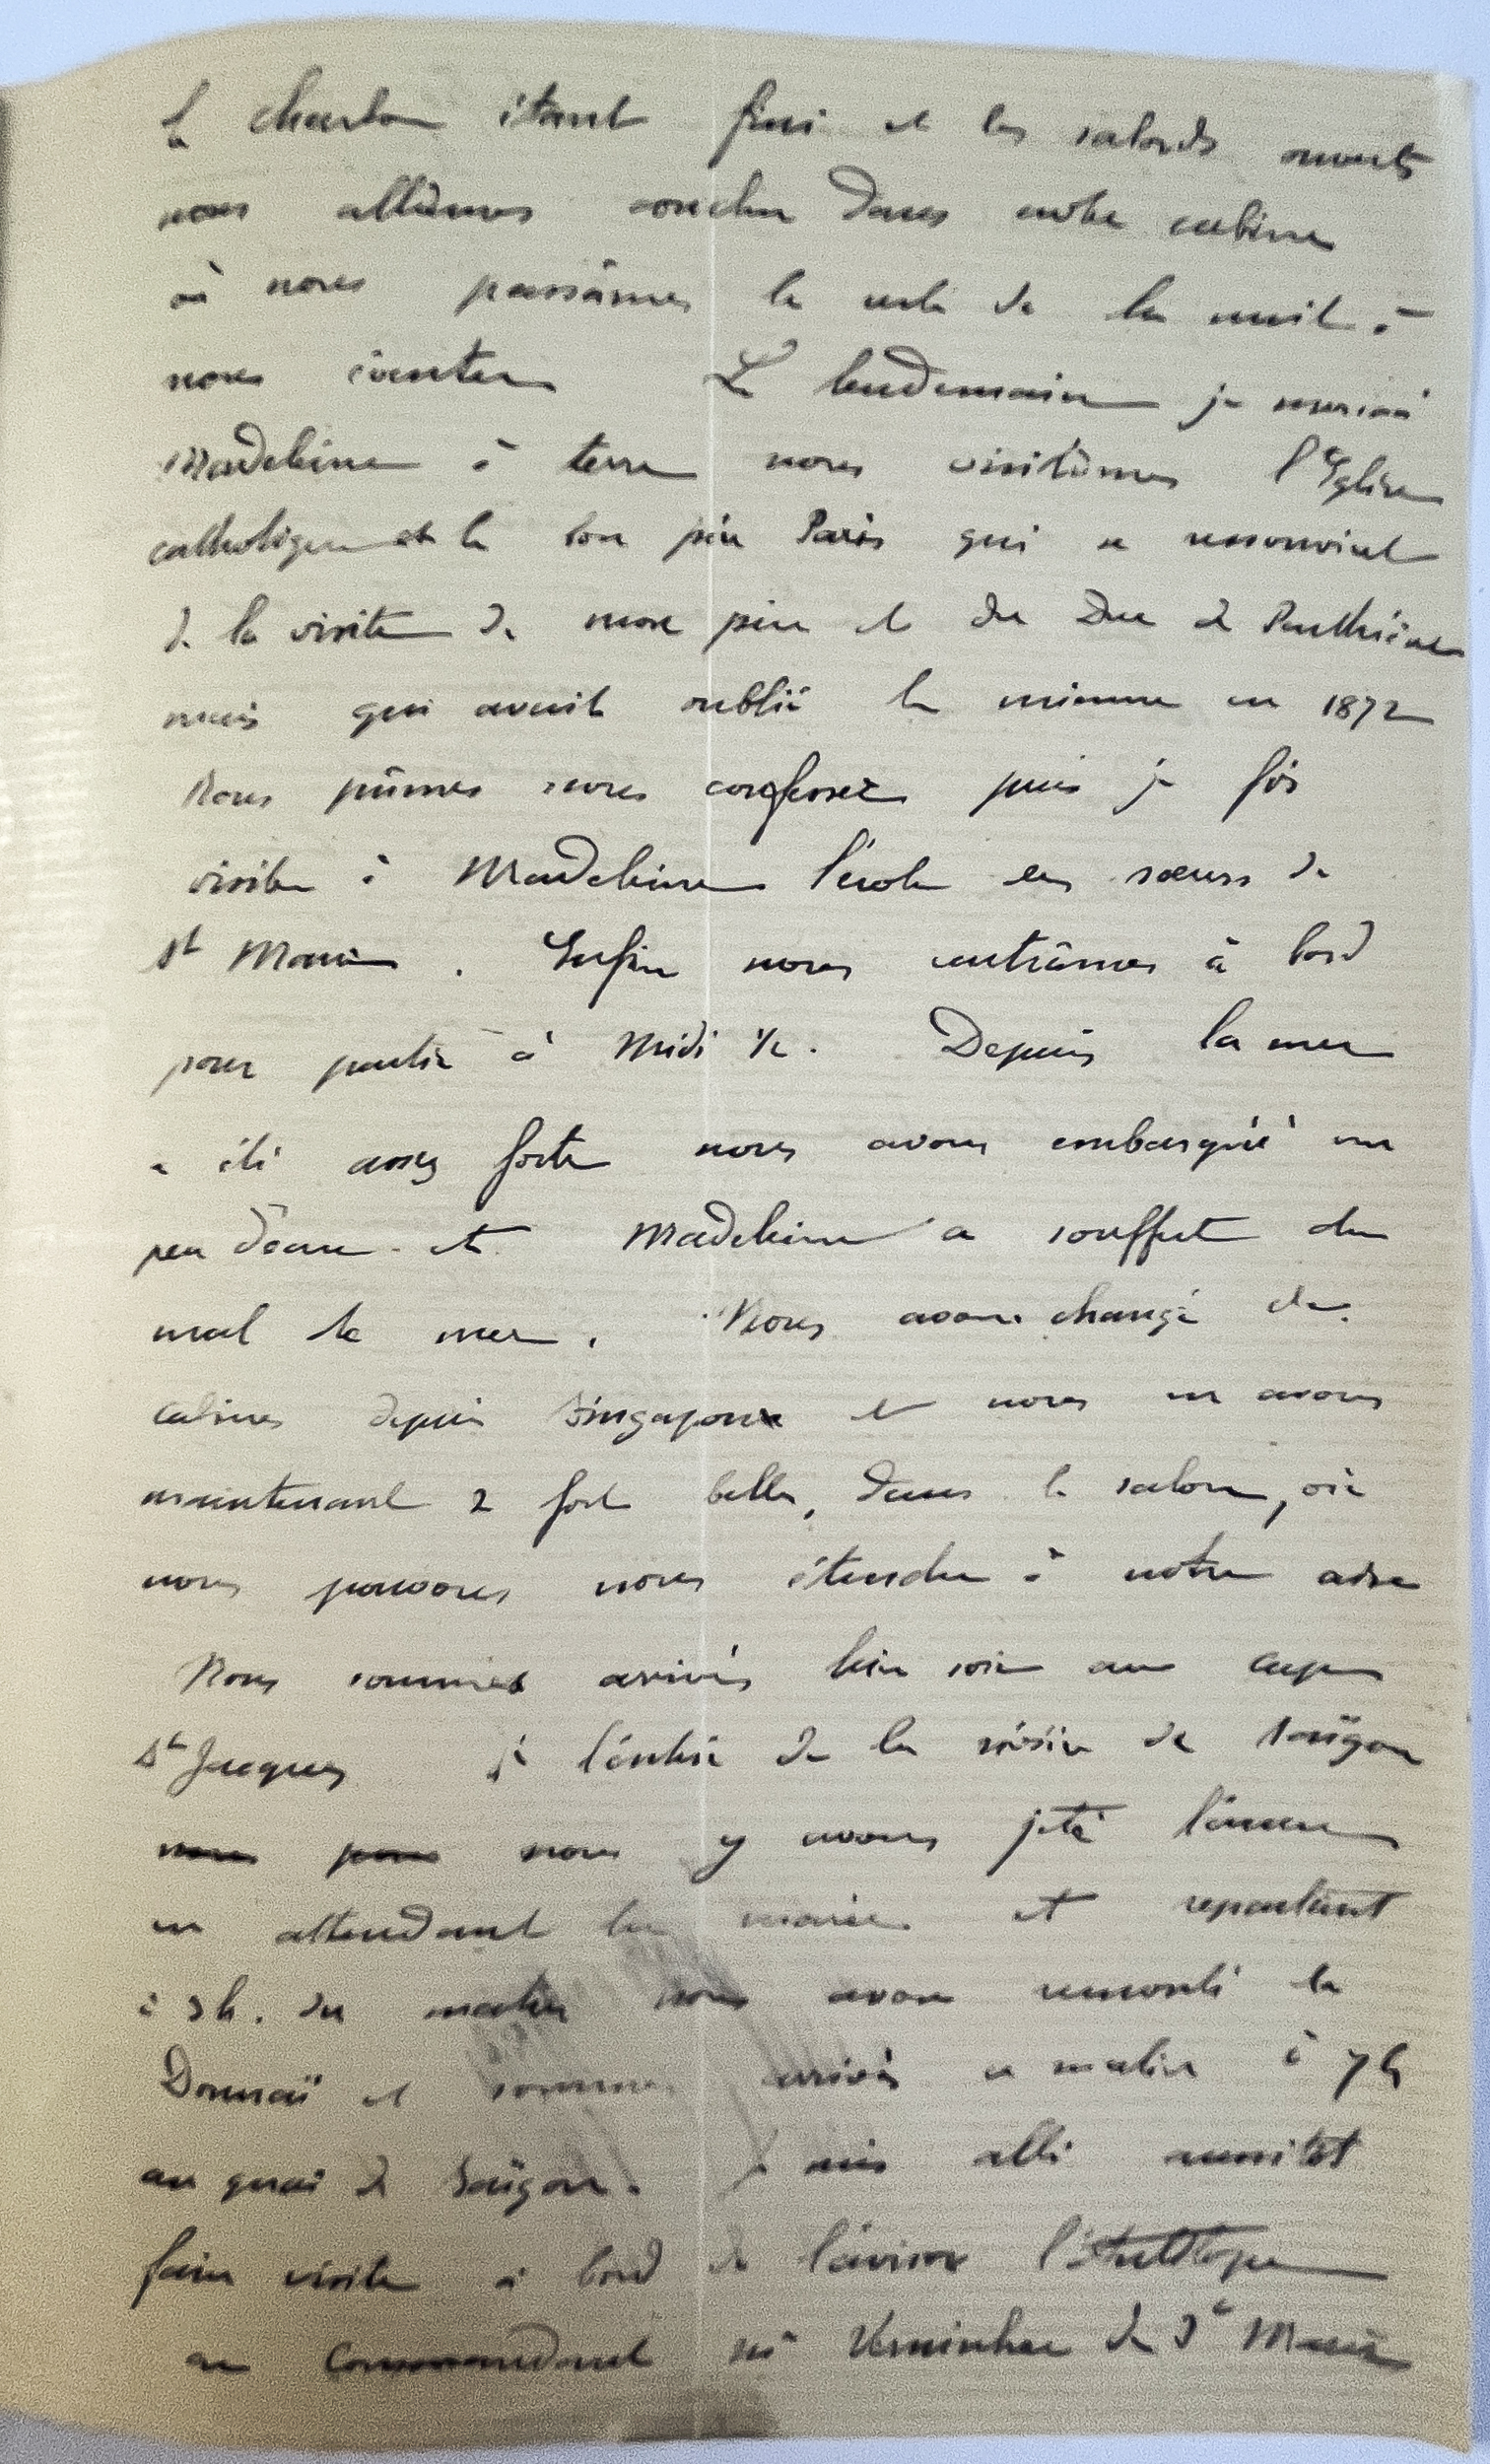 Le charbon étant fini et les sabords ouverts
nous allâmes coucher dans notre cabine
où nous passâmes le reste de la nuit à
nous éventer Le lendemain je menai
Madeleine à terre nous visitâmes l'Eglise
catholique et le bon père Paris qui se ressouvient
de la visite de mon père et du Duc de Penthièvre
mais qui avait oublié la mienne en 1872
Nous pûmes nous confesser puis je fis
visiter à Madeleine l'école des sœurs de
St Maur. Enfin nous rentrâmes à bord
pour partir à Midi 1/2. Depuis la mer
a été assez forte nous avons embarqué un
peu d'eau et Madeleine a souffert du
mal de mer. Nous avons changé de
cabines depuis Singapour et nous en avons
maintenant 2 fort belles, dans le salon, où
nous pouvons nous étendre à notre aise
Nous sommes arrivés hier soir au cap
St Jacques à l'entrée de la rivière de Saïgon
nous pour nous y avons jeté l'ancre
en attendant la marée et repartant
à 3h. du matin nous avons remonté le
Donnaï et sommes arrivés ce matin à 7h
au quai de Saïgon. Je suis allé aussitôt
faire visite à bord de l'aviso l'Antilope
au Commandant Mr de St Maur